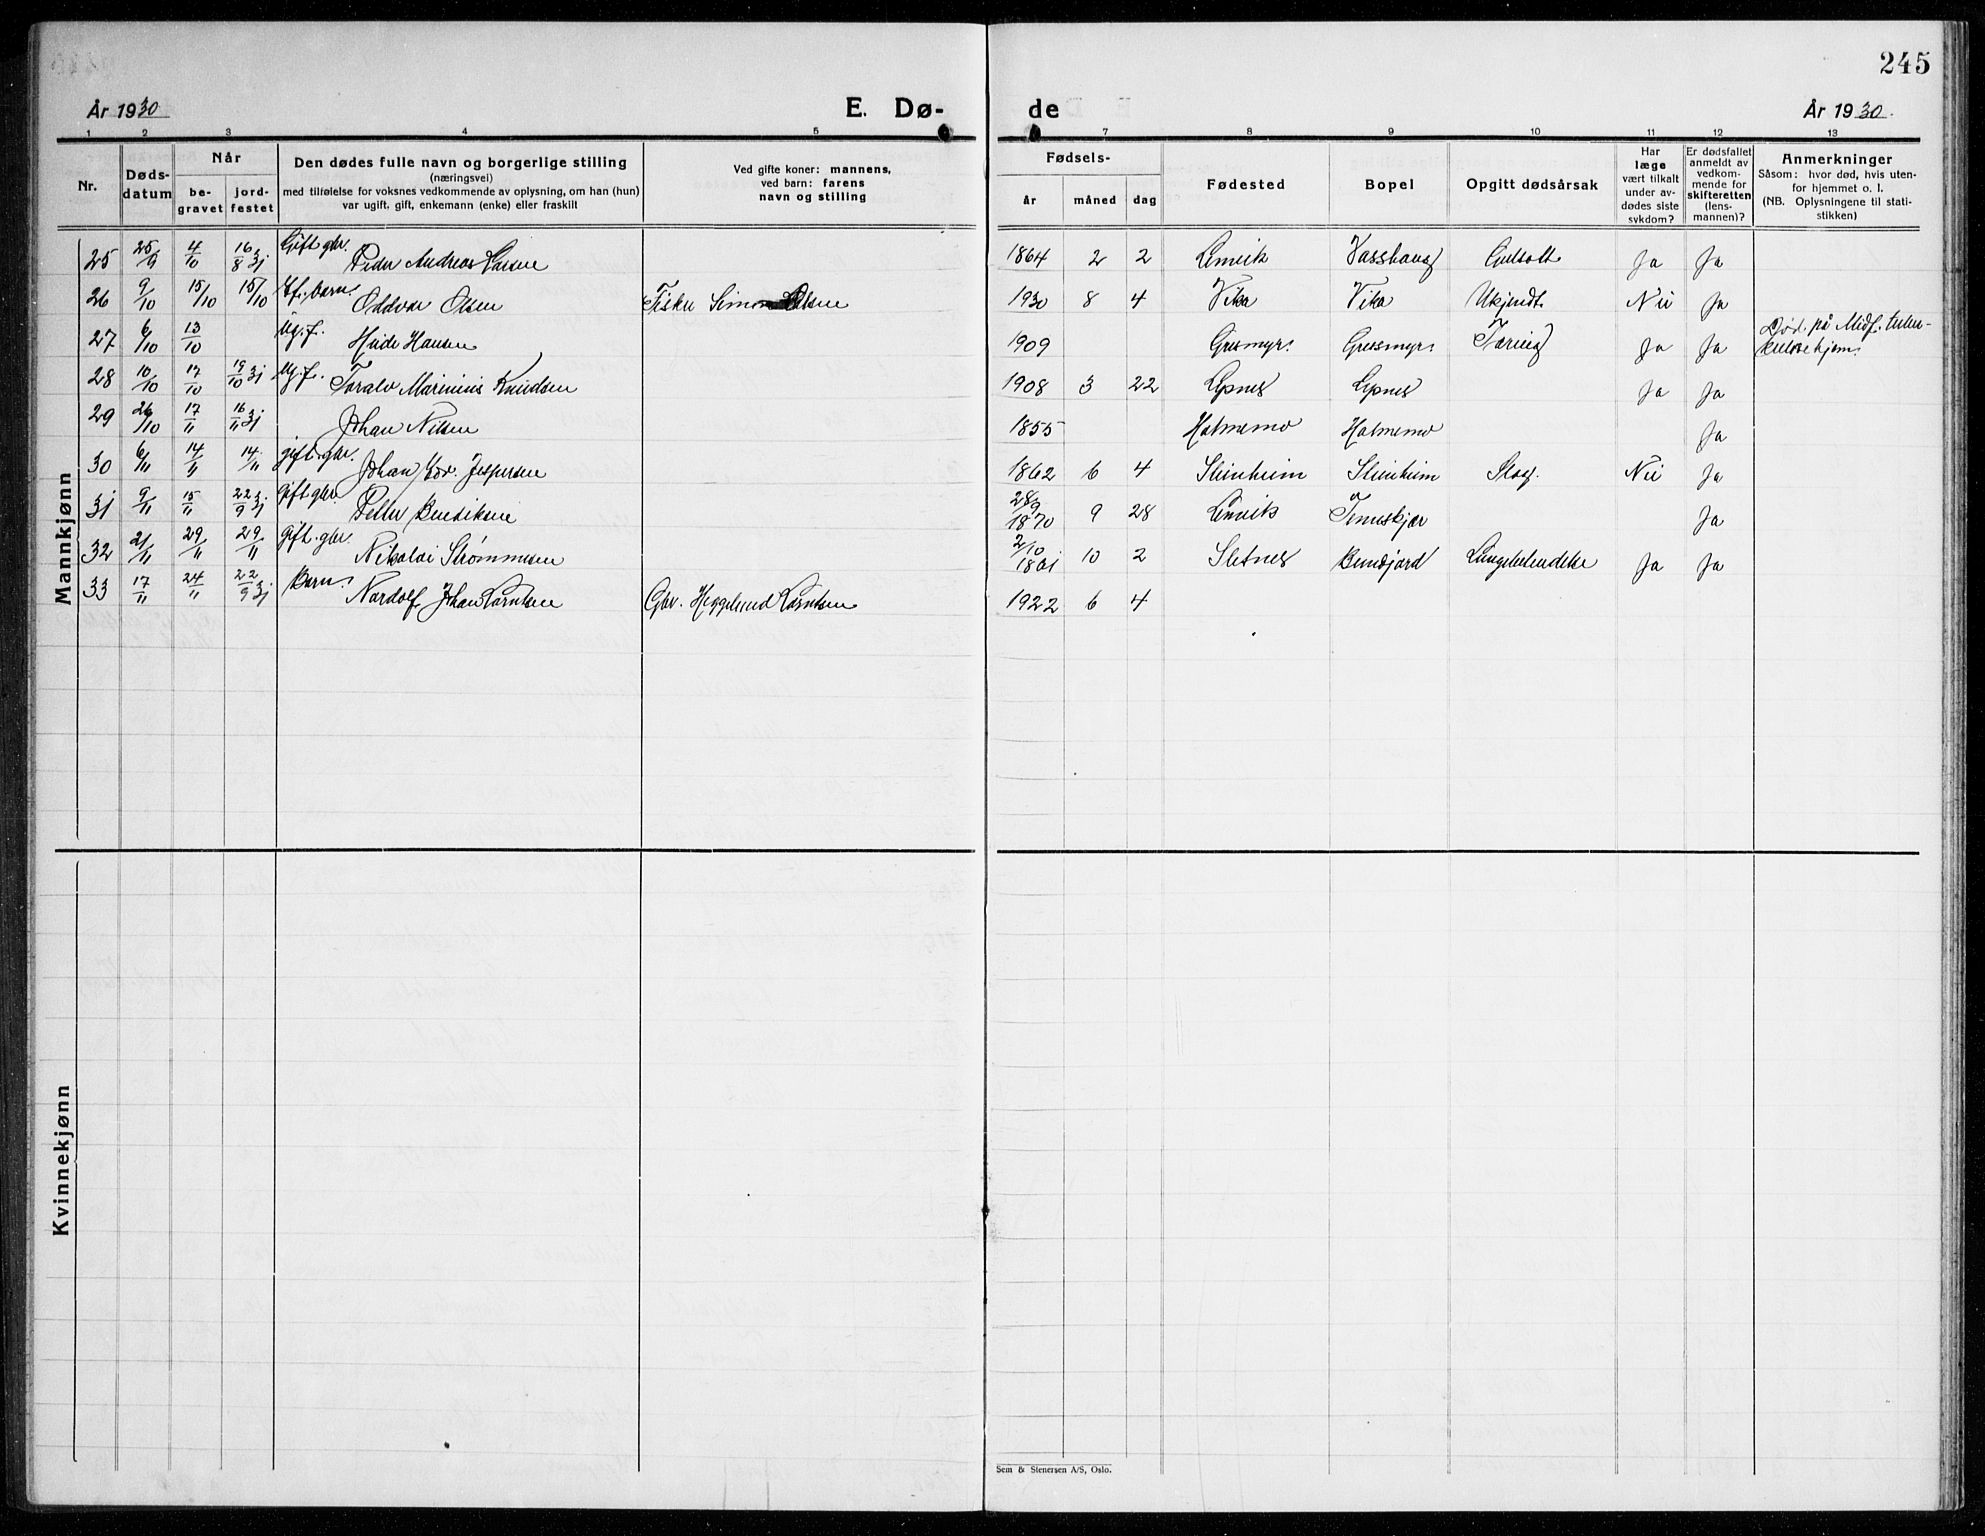 245
År 1930 E. Dø- de År 1930.
1 2 3 4 5 7 8 9 10 11 12 13
Nr.
Døds-
datum
Når
be-
gravet
jord-
festet
Den dødes fulle navn og borgerlige stilling
(næringsvei)
med tilføielse for voksnes vedkommende av oplysning, om han (hun)
var ugift, gift, enkemann (enke) eller fraskilt
Ved gifte koner: mannens,
ved barn: farens
navn og stilling
Fødsels-
år måned dag
Fødested
Bopel
Opgitt dødsårsak
Har
læge
vært tilkalt
under av-
dødes siste
sykdom?
Er dødsfallet
anmeldt av
vedkom-
mende for
skifteretten
(lens-
mannen)?
Anmerkninger
Såsom: hvor død, hvis uten-
for hjemmet o. l.
(NB. Oplysningene til stati-
stikken)
Mannkjønn
25 25/9 4/10 16/8 31 Gift gbr. Peder Andreas Larsen 1864 2 2 Lenvik Vasshaug Ja Ja
26 9/10 15/10 15/10 barn Oddvar Olsen Fisker Simon Olsen 1930 8 4 Vika Vika Ukjendt Nei Ja
27 6/10 13/10 Ug. f. Hansen 1909 Gresmyr. Gresmyr. Tæring Ja Ja Død på Midf. tuber-
kulosehjem.
28 10/10 17/10 19/10 31 Ug. f. Toralv Marinius Knudsen 1908 3 22 Lysnes Lysnes Ja Ja
29 26/10 17/11 16/11 31 Johan Nilsen 1855 Holmemo Holmemo Ja
30 6/11 14/11 14/11 gift. gbr. Johan Edv. Jespersen 1862 6 4 Steinheim Steinheim Slag. Nei Ja
31 9/11 15/11 22/9 31 gift gbr Petter Bendiksen 28/9 1870 9 28 Lenvik Tenneskjær Ja
32 21/11 29/11 29/11 Gift. gbr. Nikolai Strømmesen 2/10 1861 10 2 Sletnes Bundjord Lungebetendelse Ja Ja
33 17/11 24/11 22/9 31 Barn. Nordolf Johan Lorntsen Gbr. Heggelund Lorntsen 1922 6 4
Kvinnekjønn
Sem & Stenersen A/S, Oslo.